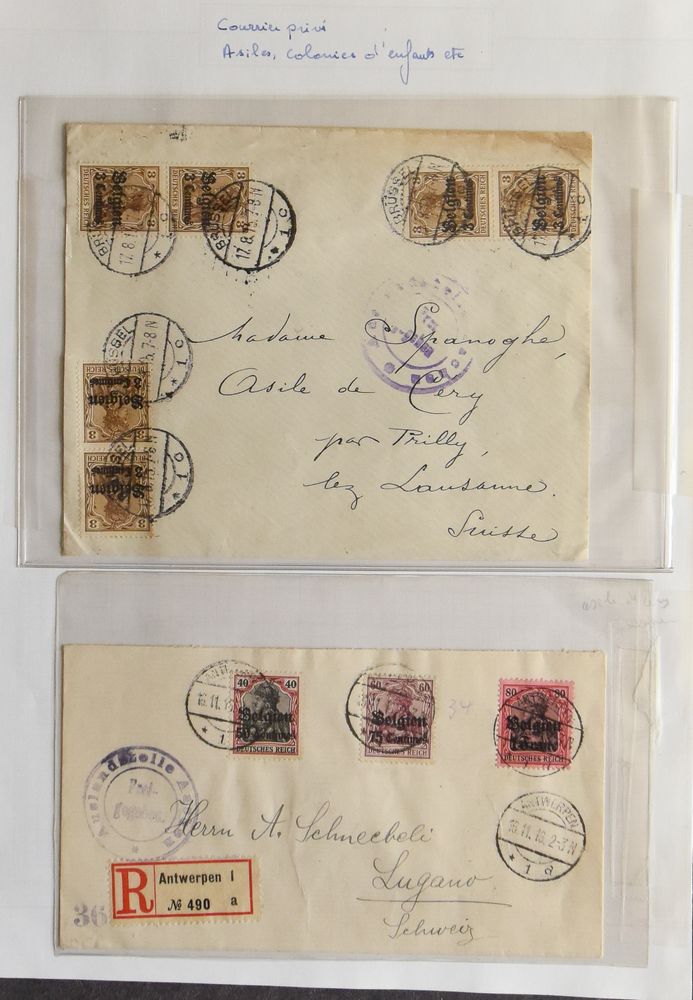 Courrier privé
Asiles, colonies d'enfants etc
DEUTSCHES REICH
Belgien
3 Centimes
3
DEUTSCHES REICH
Belgien
3 Centimes
3
BRÜSSEL
* 1 c
BRÜSSEL
* 1 c
DEUTSCHES REICH
Belgien
3 Centimes
DEUTSCHES REICH
Belgien
3 Centimes
BRÜSSEL
* 1 c
Madame Spanoghe,
Asile de Céry
par Prilly,
lez Lausanne.
Suisse
DEUTSCHES REICH
Belgien
3 Centimes
3
Belgien
3 Centimes
3
* 1 c
* 1 c
40 40
Belgien
50 Centimes
DEUTSCHES REICH
60 60
Belgien
75 Centimes
DEUTSCHES REICH
34
80 80
Belgien
DEUTSCHES REICH
ANTWERPEN
16.11.16. 2-3 N
* 1 a
Auslandstelle Aachen
Frei-
gegeben.
Herrn A. Schneebeli
Lugano
Schweiz
R
Antwerpen 1
№ 490 a
36